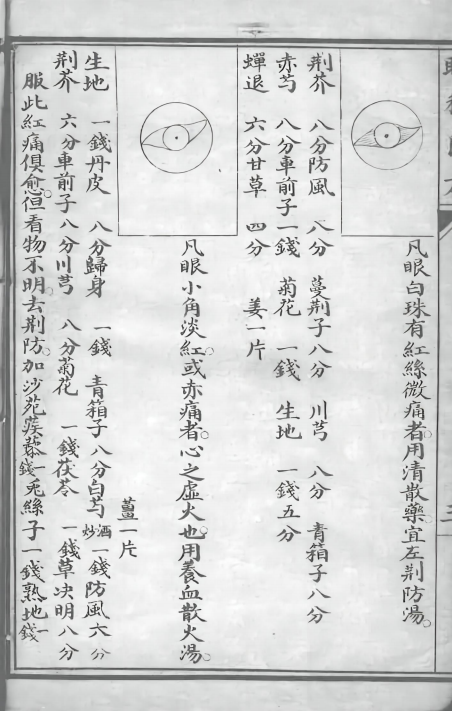 凡眼白珠有紅絲微痛者。用清散藥。宜左荆防湯。
荆芥 八分防風 八分 蔓荆子八分 川芎 八分 青箱子八分
赤芍 八分車前子一錢 菊花 一錢 生地 一錢五分
蟬退 六分甘草 四分 姜一片
凡眼小角淡紅。或赤痛者。心之虛火也。用養血散火湯。
薑一片
生地 一錢丹皮 八分歸身 一錢 青箱子八分白芍酒炒一錢防風六分
荆芥 六分車前子八分川芎 八分菊花 一錢茯苓 一錢草决明八分
服此紅痛俱愈。但看物不明。去荆防。加沙苑蒺藜一錢兎絲子一錢熟地一錢